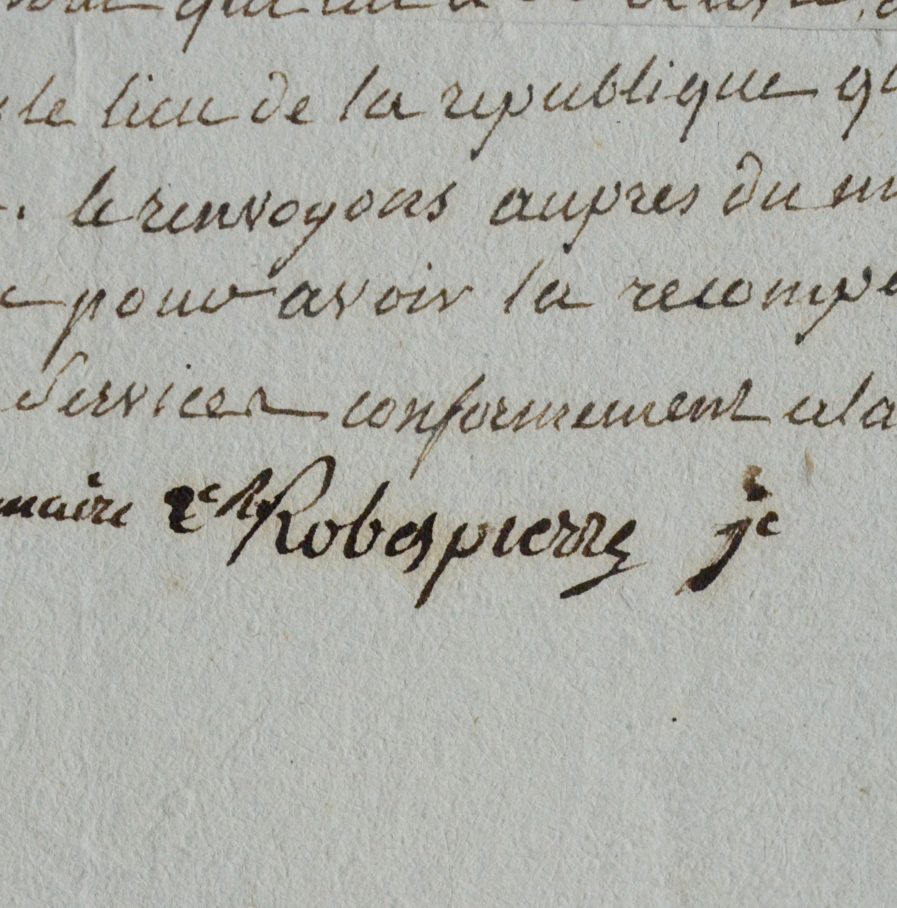 qui
le lieu de la republique
le renvoyons aupres du
pour avoir la recompe
services conformement a la
maire Robespierre je